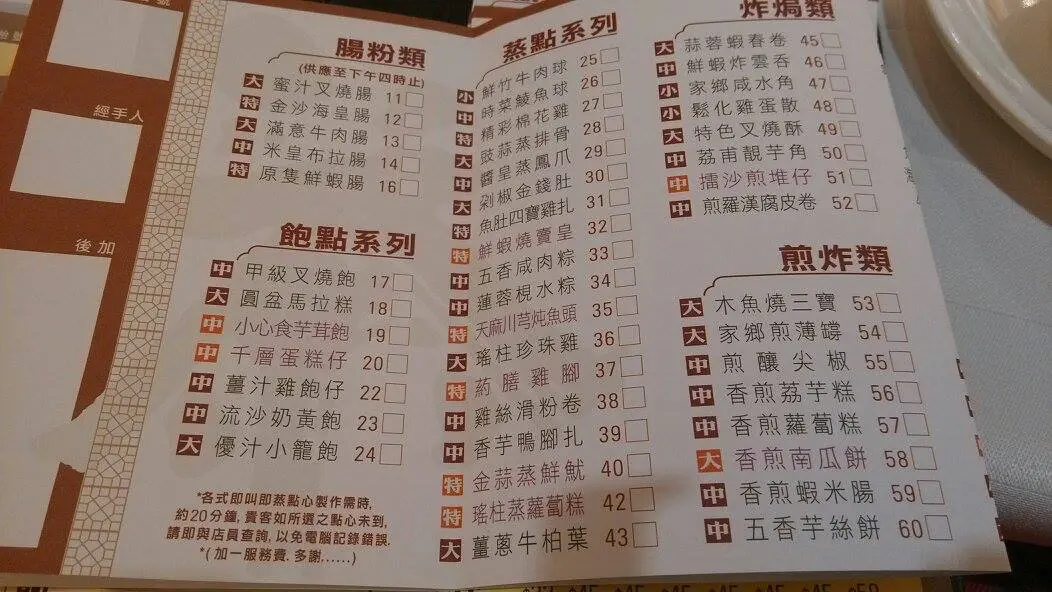 經手人
後加
腸粉類
(供應至下午四時止)
大 蜜汁叉燒腸 11
特 金沙海皇腸 12
大 滿意牛肉腸 13
中 米皇布拉腸 14
特 原隻鮮蝦腸 16
飽點系列
中 甲級叉燒飽 17
大 圓盆馬拉糕 18
中 小心食芋茸飽 19
中 千層蛋糕仔 20
中 薑汁雞飽仔 22
中 流沙奶黃飽 23
大 優汁小籠飽 24
*各式即叫即蒸點心製作需時,
約20分鐘, 貴客如所選之點心未到,
請即與店員查詢, 以免電腦記錄錯誤.
*( 加一服務費. 多謝......)
蒸點系列
小 鮮竹牛肉球 25
中 時菜鯪魚球 26
特 精彩棉花雞 27
大 豉蒜蒸排骨 28
中 醬皇蒸鳳爪 29
中 剁椒金錢肚 30
大 魚肚四寶雞扎 31
特 鮮蝦燒賣皇 32
特 五香咸肉粽 33
中 蓮蓉梘水粽 34
中 天麻川芎炖魚頭 35
特 瑤柱珍珠雞 36
大 葯膳雞腳 37
特 雞絲滑粉卷 38
中 香芋鴨腳扎 39
中 金蒜蒸鮮魷 40
特 瑤柱蒸蘿蔔糕 42
特 薑蔥牛柏葉 43
大
炸焗類
大 蒜蓉蝦春卷 45
中 鮮蝦炸雲吞 46
小 家鄉咸水角 47
小 鬆化雞蛋散 48
大 特色叉燒酥 49
中 荔甫靚芋角 50
中 擂沙煎堆仔 51
中 煎羅漢腐皮卷 52
煎炸類
大 木魚燒三寶 53
大 家鄉煎薄罉 54
中 煎釀尖椒 55
中 香煎荔芋糕 56
中 香煎蘿蔔糕 57
大 香煎南瓜餅 58
中 香煎蝦米腸 59
中 五香芋絲餅 60